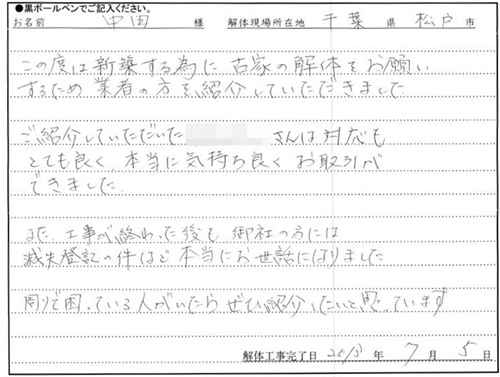 ●黒ボールペンでご記入ください。
お名前 中田 様 解体現場所在地 千葉 県 松戸 市
この度は新築する為に古家の解体をお願い
するため業者の方を紹介していただだきました
ご紹介していただいた さんは対応も
とても良く、本当に気持ち良くお取引が
できました。
また、工事が終わった後も御社の方には
滅失登記の件など本当にお世話になりました
周りで困っている人がいたらぜひ紹介したいと思っています
解体工事完了日 2013 年 7 月 5 日